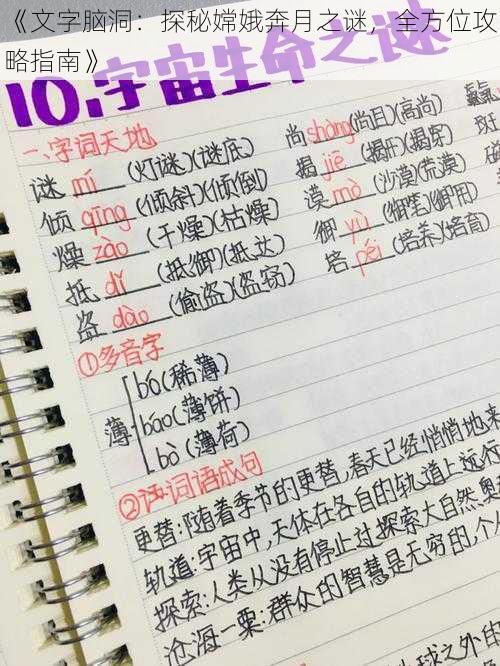 《文字脑洞：探秘嫦娥奔月之谜，全方位攻
略指南》
10.宇宙生命之谜
一、字词天地
谜 mí (灯谜)(谜底)
倾 qīng (倾斜)(倾倒)
燥 zào (干燥)(枯燥)
抵 dǐ (抵御)(抵达)
盗 dào (偷盗)(盗窃)
尚 shàng (尚且)(高尚)
揭 jiē (揭开)(揭穿)
漠 mò (沙漠)(荒漠)
御 yù (御笔)(御用)
培 péi (培养)(培育)
斑
①多音字
薄
báo (稀薄)
báo (薄饼)
bò (薄荷)
②词语成句
更替:随着季节的更替,春天已经悄悄地来
轨道:宇宙中,天体在各自的轨道上远行
探索:人类从没有停止过探索大自然奥
沧海一粟:群众的智慧是无穷的,个
球之外